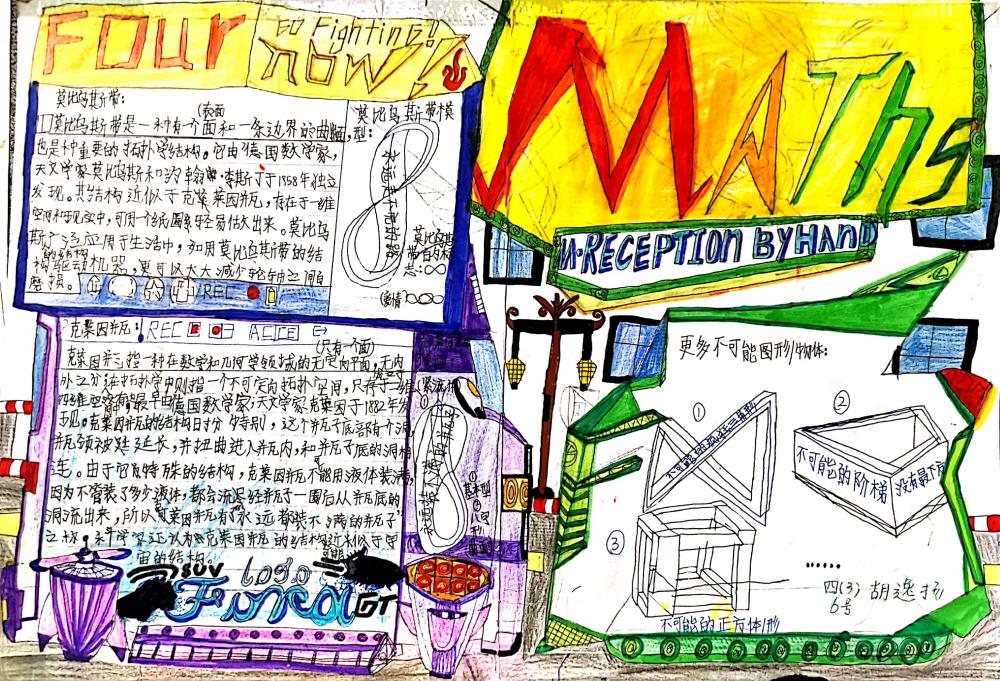 FOUR
GO Fighting!
NOW!
MATHS
RECEPTION BY HAND
莫比乌斯带:
(表面
莫比乌斯带是一种有个面和一条边界的曲面,
也是种重要的拓扑学结构。它由德国数学家,
天文学家莫比乌斯和约翰 李斯丁于1958年独立
发现。其结构近似于克莱因瓶,存在于
空间和现实中,可用一个纸圈轻易估大出来。莫比乌
斯广泛应用于生活中,如用莫比乌斯带的结
构驱动机器,更可以大大减少轮轴之间自
磨损。
REC
莫比乌斯带模
型:
永远走不前的路
(爱情)
克莱因瓶:
REC
(只有一个面)
克莱因瓶指一种在数学和几何学领域的无定向平面,无内
外之分在拓扑学中则指一个不可定向拓扑空间,
最早由德国数学家,天文学家克莱因于1882年发
现。克莱因瓶的结构十分特别,这个瓶子底部有个洞
瓶颈被延长,并扭曲进入瓶内,和瓶子底的洞相
连。由于它瓦特殊的结构,克莱因瓶不能用液体装满,
因为不管装了多少液体,都会流经瓶子一圈后从瓶底的
洞流出来,所以克莱因瓶有"永远都装不满的瓶子"
之称,科学家还认为克莱因瓶的结构近似于宇
宙的结构。
永远装不满的瓶子
基本型
8字
SUV
logo
GT
更多不可能图形/物体:
①
不可能的
②
不可能的阶梯 没有最下
③
不可能的正方体形
......
四(3) 胡逸
6号